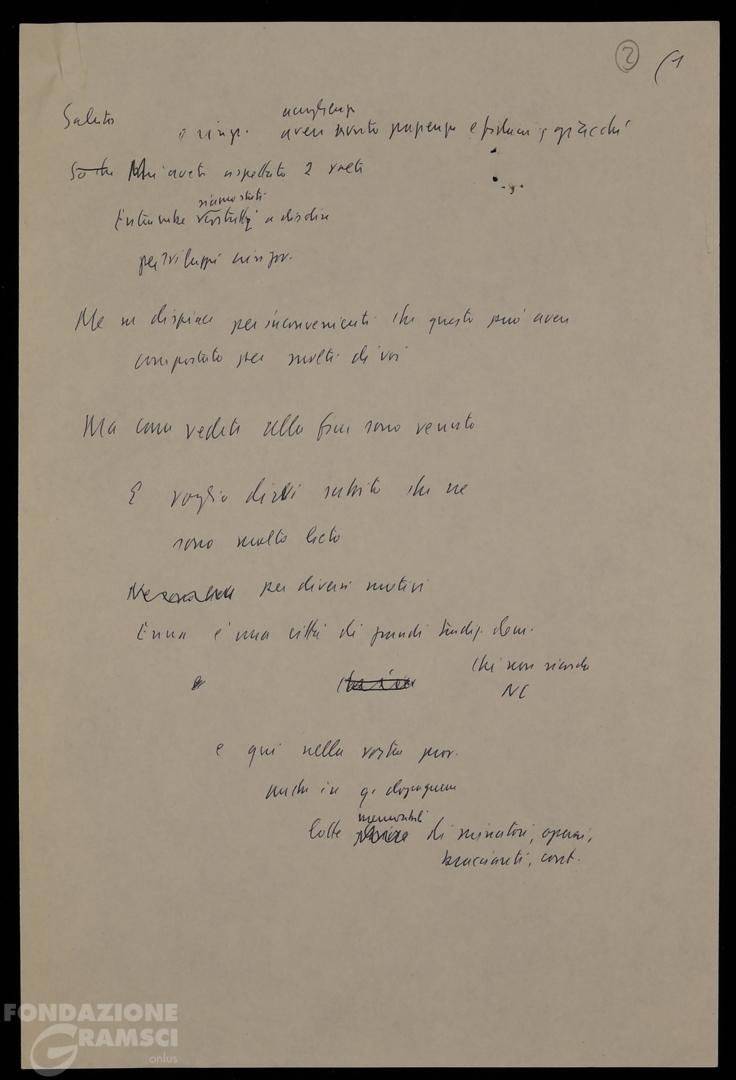 2 (1
Saluto
accoglienza
e ringr. avere avuto pazienza e fiducia
So che Mi avete aspettato 2 volte
siamo stati
Entrambe a disdire
per sviluppi crisi gov.
Me ne dispiace per inconvenienti che questo può aver
comportato per molti di voi
Ma come vedete alla fine sono venuto
E voglio dirvi subito che ne
sono molto lieto
per diversi motivi
Enna è una città di grandi tradiz. dem.
e
Chi non ricorda
NC
e qui nella vostra prov.
anche in q. dopoguerra
memorabili
lotte di minatori, operai,
braccianti, cont.
FONDAZIONE
GRAMSCI
onlus